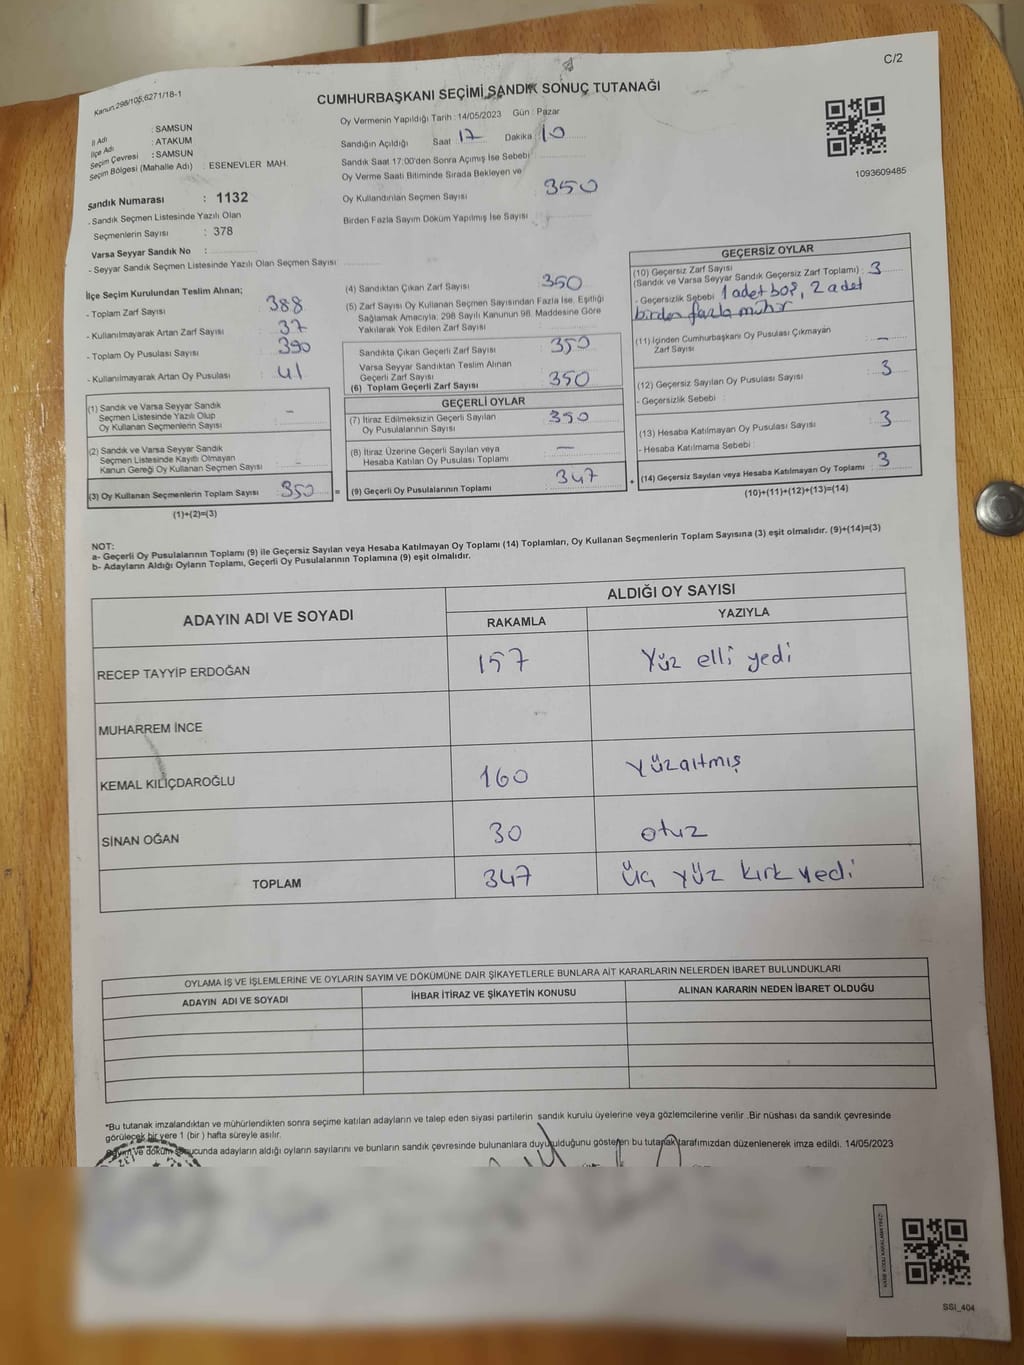 C/2
Kanun:298/105,6271/18-1
CUMHURBAŞKANI SEÇİMİ SANDIK SONUÇ TUTANAĞI
İl Adı : SAMSUN
İlçe Adı : ATAKUM
Seçim Çevresi : SAMSUN
Seçim Bölgesi (Mahalle Adı) : ESENEVLER MAH.
Sandık Numarası : 1132
- Sandık Seçmen Listesinde Yazılı Olan
Seçmenlerin Sayısı : 378
Varsa Seyyar Sandık No :
- Seyyar Sandık Seçmen Listesinde Yazılı Olan Seçmen Sayısı
Oy Vermenin Yapıldığı Tarih : 14/05/2023 Gün : Pazar
Sandığın Açıldığı Saat 17 Dakika 10
Sandık Saat 17:00'den Sonra Açımış İse Sebebi
Oy Verme Saati Bitiminde Sırada Bekleyen ve
Oy Kullandırılan Seçmen Sayısı 350
Birden Fazla Sayım Döküm Yapılmış İse Sayısı
1093609485
İlçe Seçim Kurulundan Teslim Alınan;
- Toplam Zarf Sayısı 388
- Kullanılmayarak Artan Zarf Sayısı 37
- Toplam Oy Pusulası Sayısı 390
- Kullanılmayarak Artan Oy Pusulası 41
(1) Sandık ve Varsa Seyyar Sandık
Seçmen Listesinde Yazılı Olup
Oy Kullanan Seçmenlerin Sayısı -
(2) Sandık ve Varsa Seyyar Sandık
Seçmen Listesinde Kayıtlı Olmayan
Kanun Gereği Oy Kullanan Seçmen Sayısı -
(3) Oy Kullanan Seçmenlerin Toplam Sayısı 350 =
(1)+(2)=(3)
(4) Sandıktan Çıkan Zarf Sayısı 350
(5) Zarf Sayısı Oy Kullanan Seçmen Sayısından Fazla İse, Eşitliği
Sağlamak Amacıyla, 298 Sayılı Kanunun 98. Maddesine Göre
Yakılarak Yok Edilen Zarf Sayısı
Sandıkta Çıkan Geçerli Zarf Sayısı 350
Varsa Seyyar Sandıktan Teslim Alınan
Geçerli Zarf Sayısı
(6) Toplam Geçerli Zarf Sayısı 350
GEÇERLİ OYLAR
(7) İtiraz Edilmeksizin Geçerli Sayılan
Oy Pusulalarının Sayısı 350
(8) İtiraz Üzerine Geçerli Sayılan veya
Hesaba Katılan Oy Pusulası Toplamı -
(9) Geçerli Oy Pusulalarının Toplamı 347 +
GEÇERSİZ OYLAR
(10) Geçersiz Zarf Sayısı
(Sandık ve Varsa Seyyar Sandık Geçersiz Zarf Toplamı) : 3
- Geçersizlik Sebebi 1 adet boş, 2 adet
birden fazla mühür
(11) İçinden Cumhurbaşkanı Oy Pusulası Çıkmayan
Zarf Sayısı -
(12) Geçersiz Sayılan Oy Pusulası Sayısı 3
- Geçersizlik Sebebi :
(13) Hesaba Katılmayan Oy Pusulası Sayısı 3
- Hesaba Katılmama Sebebi :
(14) Geçersiz Sayılan veya Hesaba Katılmayan Oy Toplamı 3
(10)+(11)+(12)+(13)=(14)
NOT:
a- Geçerli Oy Pusulalarının Toplamı (9) ile Geçersiz Sayılan veya Hesaba Katılmayan Oy Toplamı (14) Toplamları, Oy Kullanan Seçmenlerin Toplam Sayısına (3) eşit olmalıdır. (9)+(14)=(3)
b- Adayların Aldığı Oyların Toplamı, Geçerli Oy Pusulalarının Toplamına (9) eşit olmalıdır.
ADAYIN ADI VE SOYADI ALDIĞI OY SAYISI
RAKAMLA YAZIYLA
RECEP TAYYİP ERDOĞAN 157 Yüz elli yedi
MUHARREM İNCE
KEMAL KILIÇDAROĞLU 160 Yüzaltmış
SİNAN OĞAN 30 otuz
TOPLAM 347 Üç yüz kırk yedi
OYLAMA İŞ VE İŞLEMLERİNE VE OYLARIN SAYIM VE DÖKÜMÜNE DAİR ŞİKAYETLERLE BUNLARA AİT KARARLARIN NELERDEN İBARET BULUNDUKLARI
ADAYIN ADI VE SOYADI İHBAR İTİRAZ VE ŞİKAYETİN KONUSU ALINAN KARARIN NEDEN İBARET OLDUĞU
*Bu tutanak imzalandıktan ve mühürlendikten sonra seçime katılan adayların ve talep eden siyasi partilerin sandık kurulu üyelerine veya gözlemcilerine verilir .Bir nüshası da sandık çevresinde
görülecek bir yere 1 (bir ) hafta süreyle asılır.
Sayım ve döküm sonucunda adayların aldığı oyların sayılarını ve bunların sandık çevresinde bulunanlara duyurulduğunu gösteren bu tutanak tarafımızdan düzenlenerek imza edildi. 14/05/2023
SSI_404